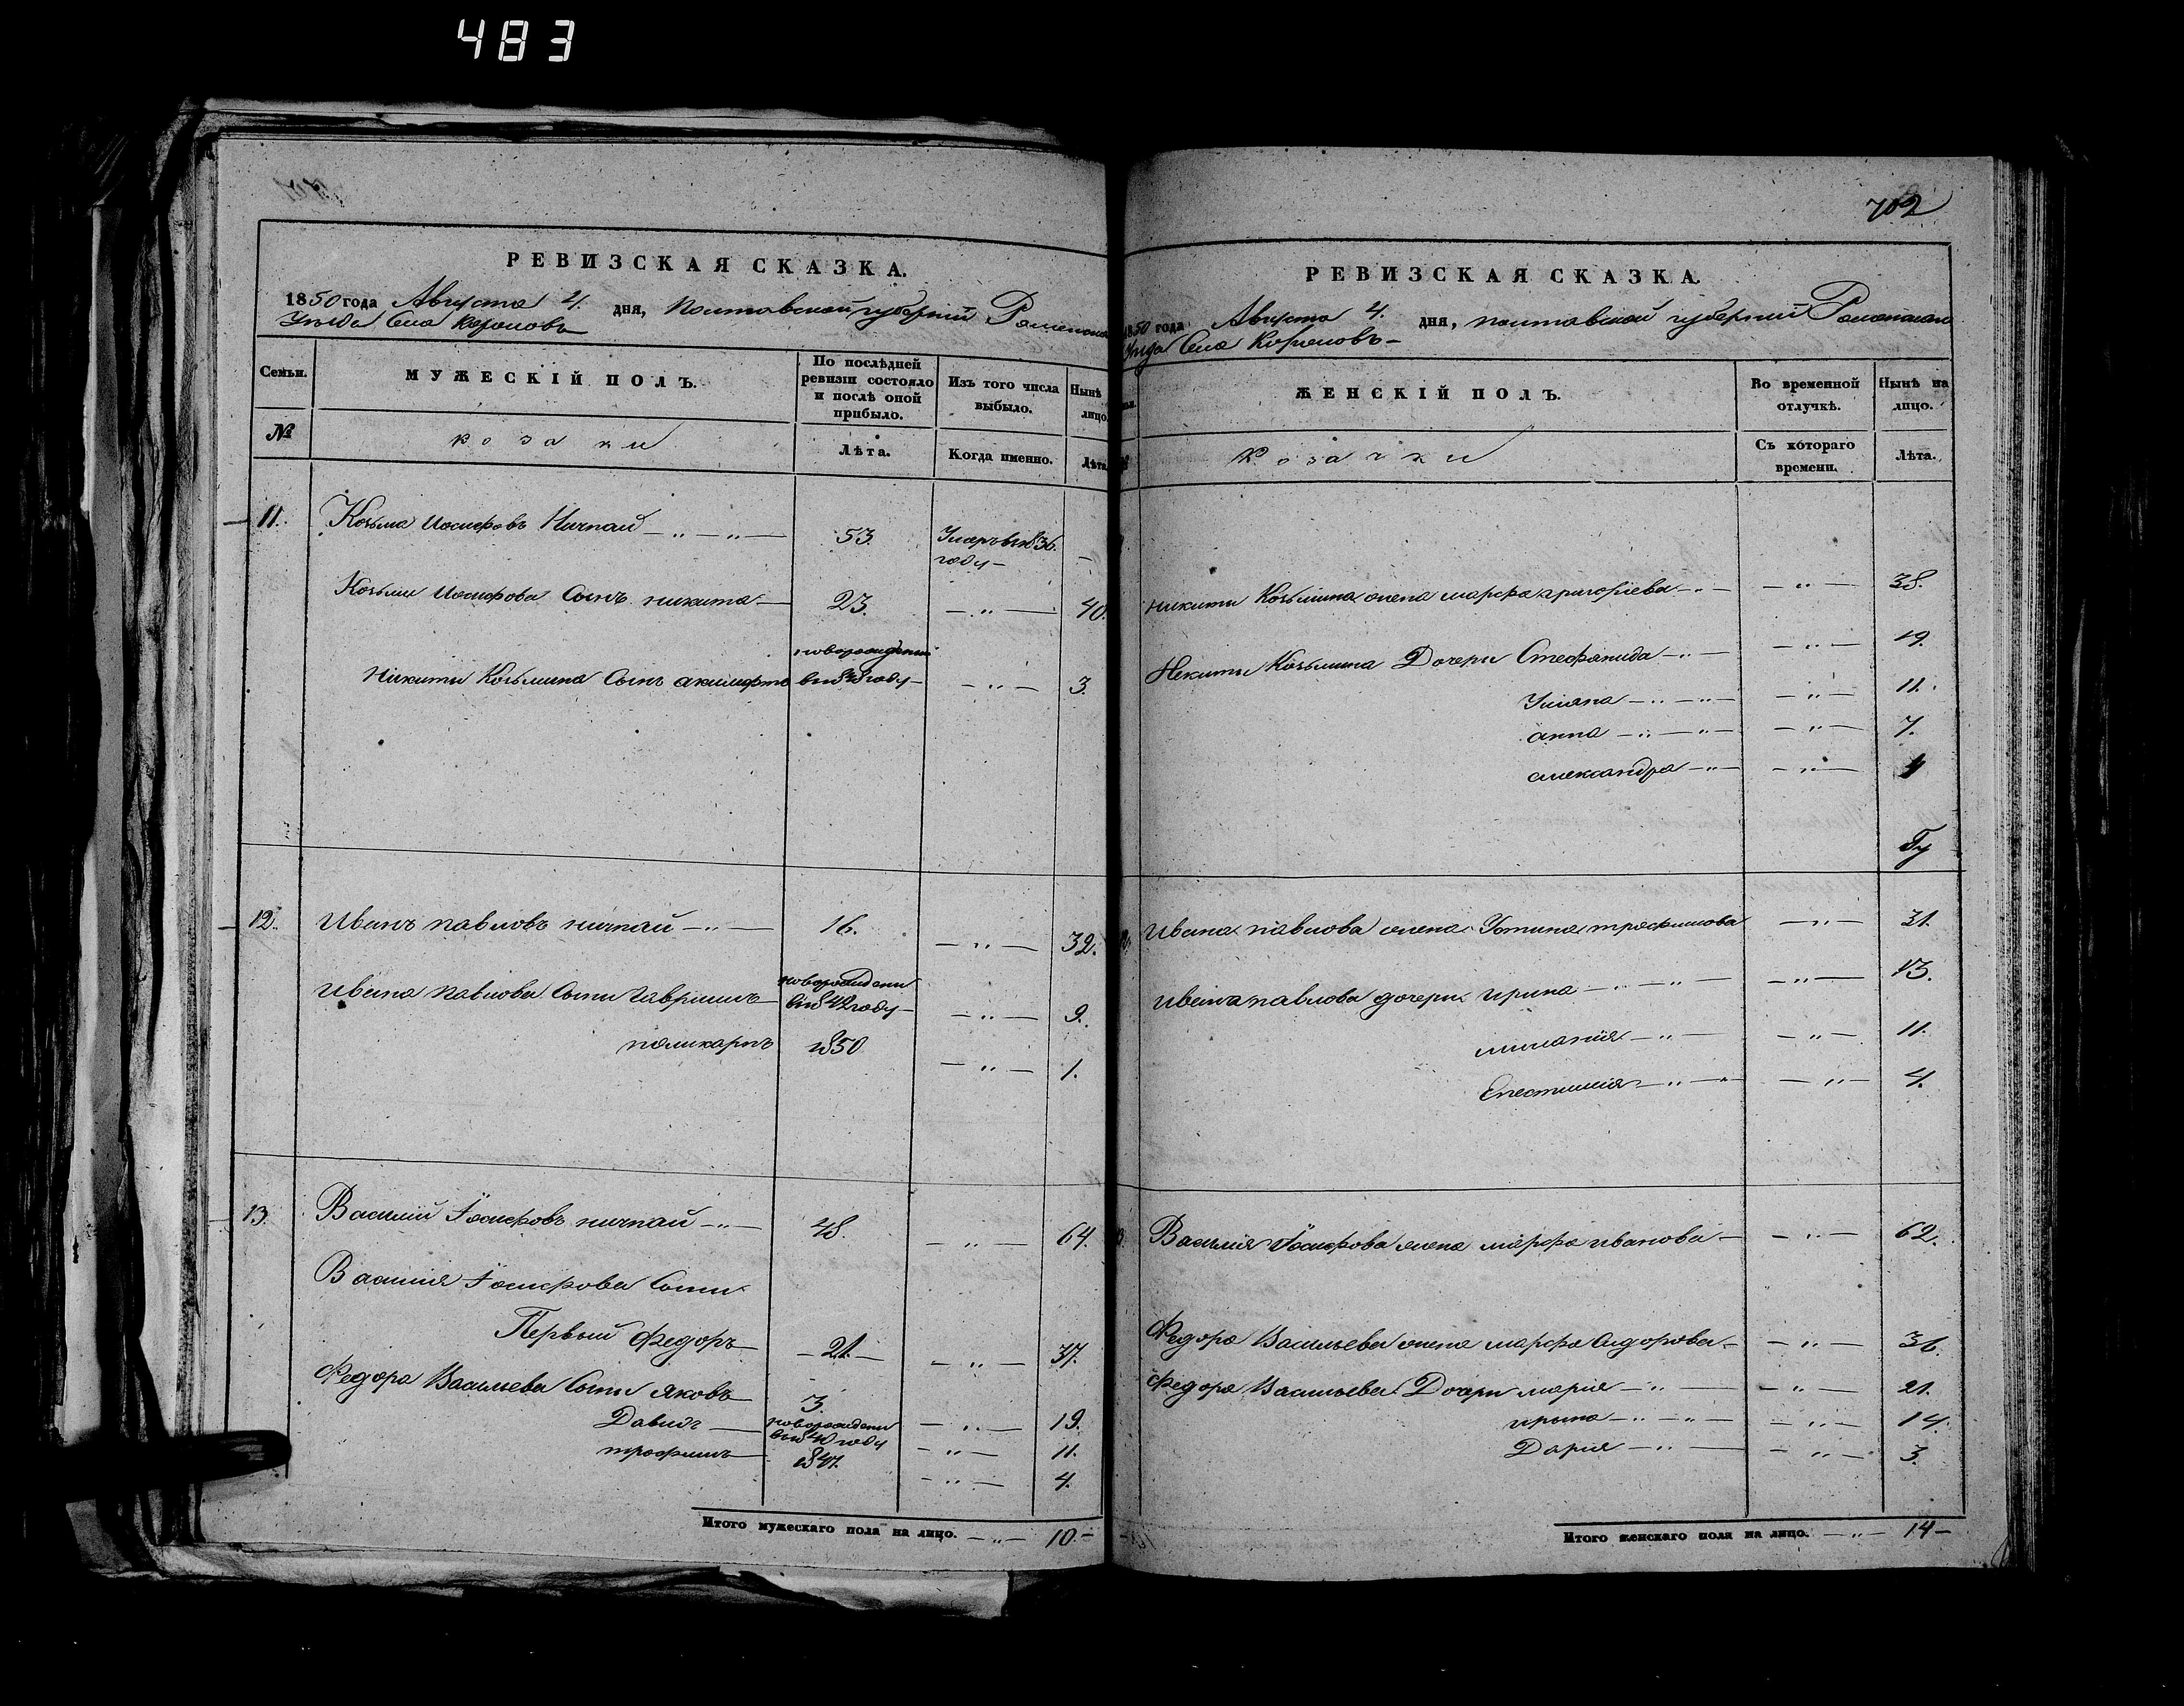 483
702
РЕВИЗСКАЯ СКАЗКА.
1850 года Августа 4. дня, Полтавской губерніи Роменско
Уезда Села Корововъ
Семьи.
МУЖЕСКІЙ ПОЛЪ.
По послѣдней ревизіи состояло и послѣ оной прибыло.
Изъ того числа выбыло.
Нынѣ лицо
№
козаки
Лѣта.
Когда именно.
Лѣта
11. Козьма Иосифовъ Ничпай — „ — „ — 53. Умеръ въ 1836. году — —
Козьми Иосифова Сынъ никита — 23. — „ — 40.
новорожденный
Никиты Козьмина Сынъ акимъ в 1848 году — — „ — 3.
12. Иванъ павловъ ничпай — „ — 16. — „ — 32.
Ивана Павлова Сыны Гаврiилъ новорождены в 1842 году — — „ — 9.
поликарпъ 1850 — „ — 1.
13. Василий Іосифовъ ничпай — „ — 48. — „ — 64.
Василия Іосифова Сыны
Первый Федоръ — 21. — — „ — 37.
Федора Васильева Сыны Яковъ 3. — „ — 19.
Давидъ — новорождены в 1840 году — „ — 11.
трофимъ 1847. — „ — 4.
Итого мужескаго пола на лицо. — „ — 10 –
РЕВИЗСКАЯ СКАЗКА.
1850 года Августа 4. дня, полтавской губерніи Роменскаго
Уезда Села
ЖЕНСКІЙ ПОЛЪ.
Во временной отлучкѣ.
Нынѣ на лицо.
козачки
Съ котораго времени.
Лѣта.
Никиты Козьмина жена марфа григорiева — „ — — „ — 38.
Никиты Козьмина Дочери Стефанида — „ — — „ — 19.
Уляна — „ — „ — — „ — 11.
анна — „ — „ — — „ — 7.
александра — „ — — „ — 1
Ивана павлова жена Устина трофимова — „ — 31.
Ивана павлова дочери ирина — „ — „ — — „ — 13.
миланiя — „ — — „ — 11.
Епестимiя — „ — — „ — 4.
Василия Іосифова жена марфа иванова — — „ — 62.
Федора Васильева жена марфа Сидорова — — „ — 36.
Федора Васильева Дочери марiя — „ — — „ — 21.
ирына — „ — „ — — „ — 14.
Дарiя — „ — — „ — 3.
Итого женскаго пола на лицо. — „ — 14 –